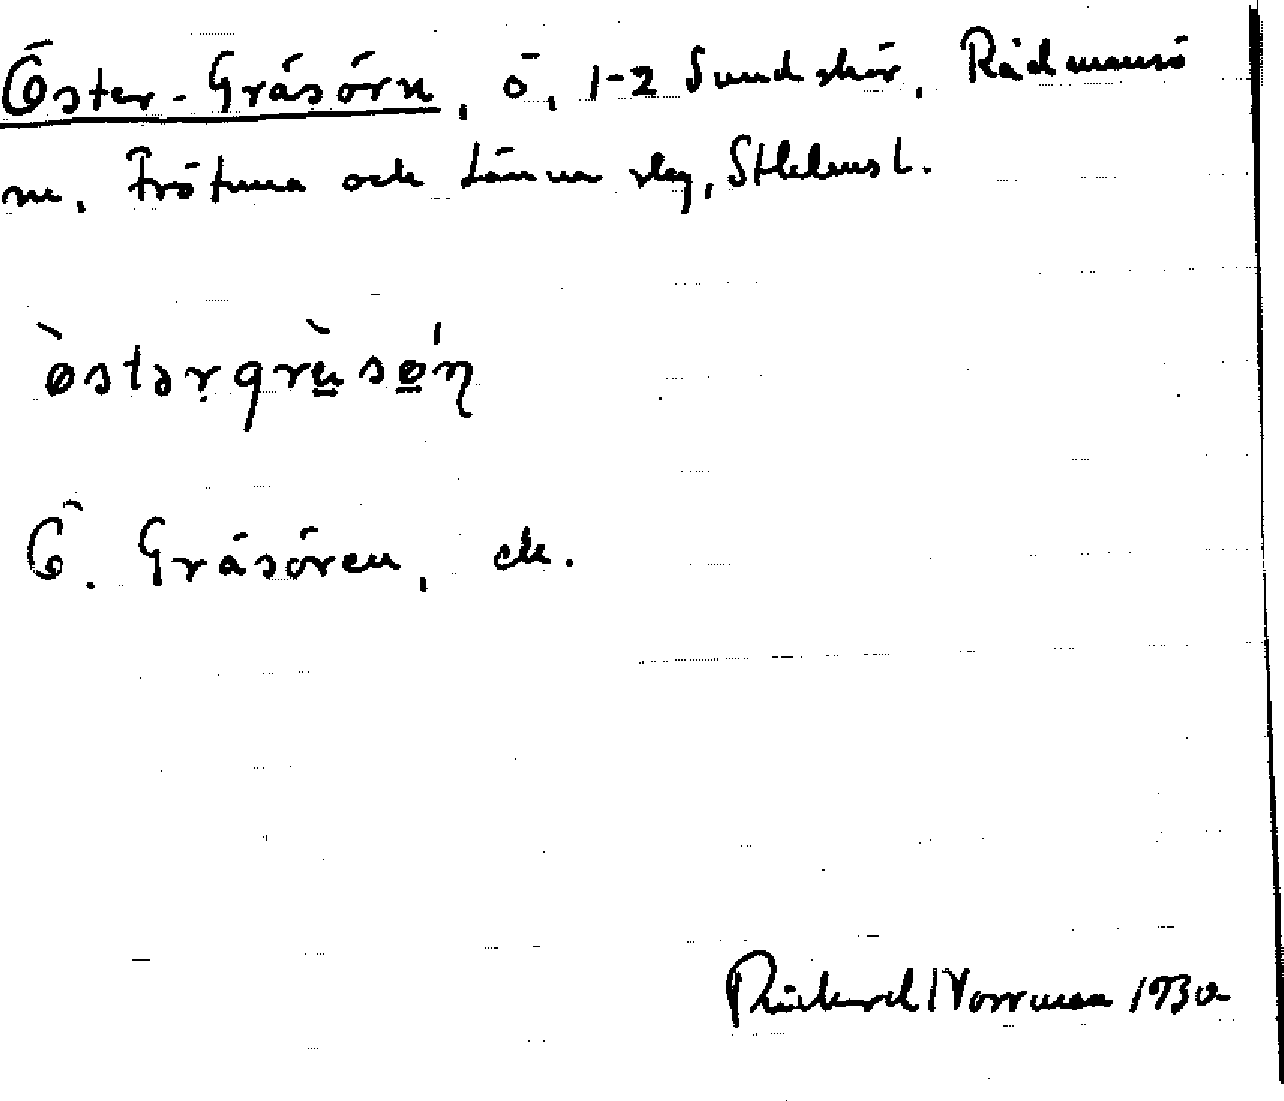 Öster-Gråsörn, ö, 1-2 Sundskär, Rådmansö
sn, Frötuna och Länna slg, Sthlms l.
òstərgrù̱sø̱'n
Ö. Gråsören, ek.
Rickard Norrman 1930